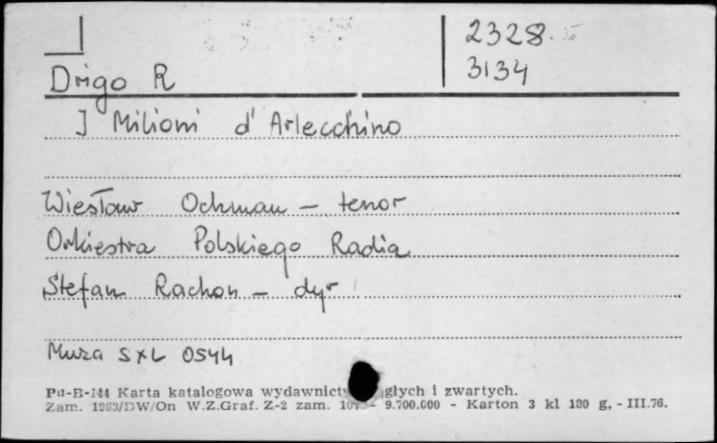 2328
3134
Drigo R
I Milioni d'Arlecchino
Wiesław Ochman - tenor
Orkiestra Polskiego Radia
Stefan Rachoń - dyr
Muza SXL 0544
Pu-B-144 Karta katalogowa wydawnict głych i zwartych.
Zam. 1963/DW/On W.Z.Graf. Z-2 zam. 9.700.000 - Karton 3 kl 180 g, - III.76.